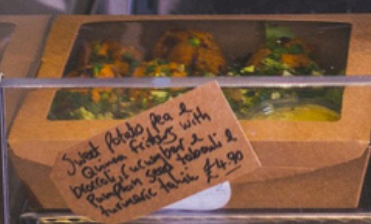 Sweet Potato Pea &
Quinoa Fritters with
broccoli, cucumber &
Pumpkin seed tabouli &
turmeric tahini £4.90